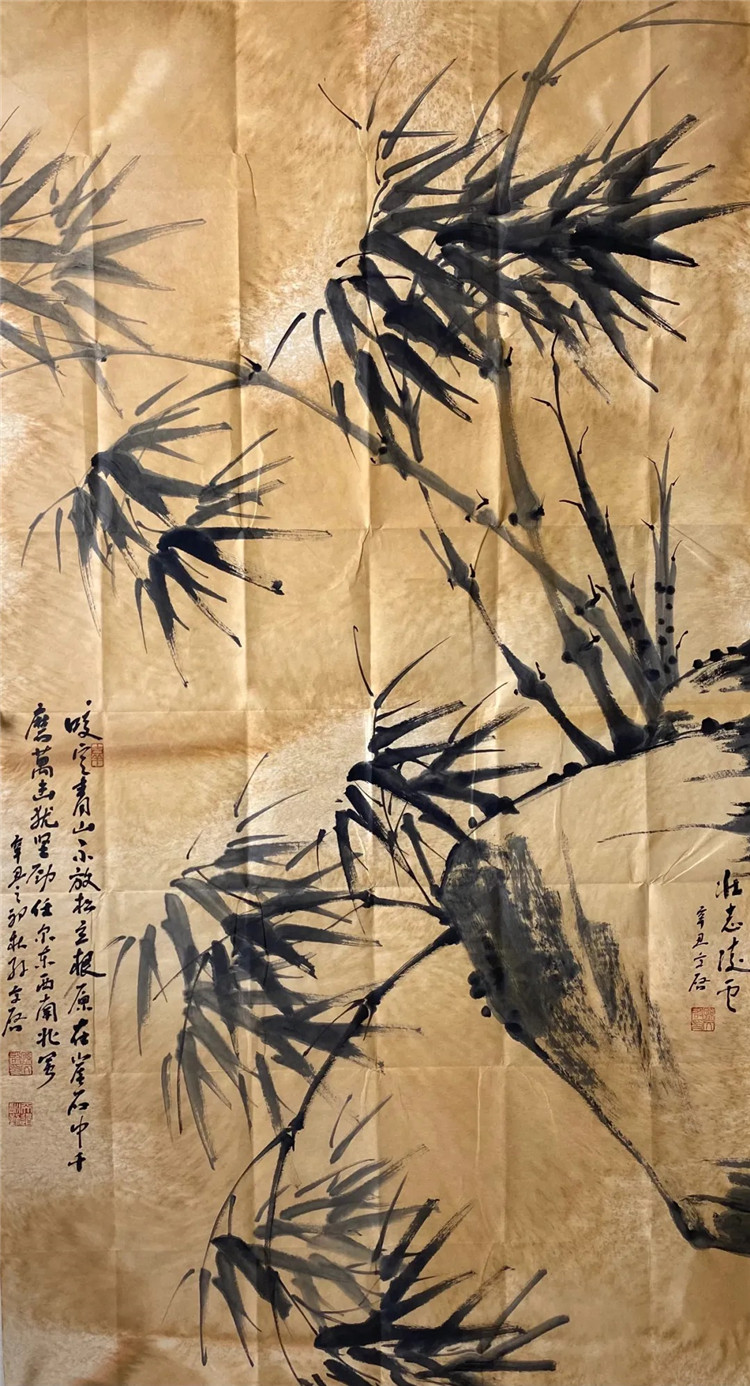 壮志凌云
辛丑守启
咬定青山不放松立根原在崖石中千
磨萬击犹坚劲任尔东西南北风
辛丑之初秋孙守启